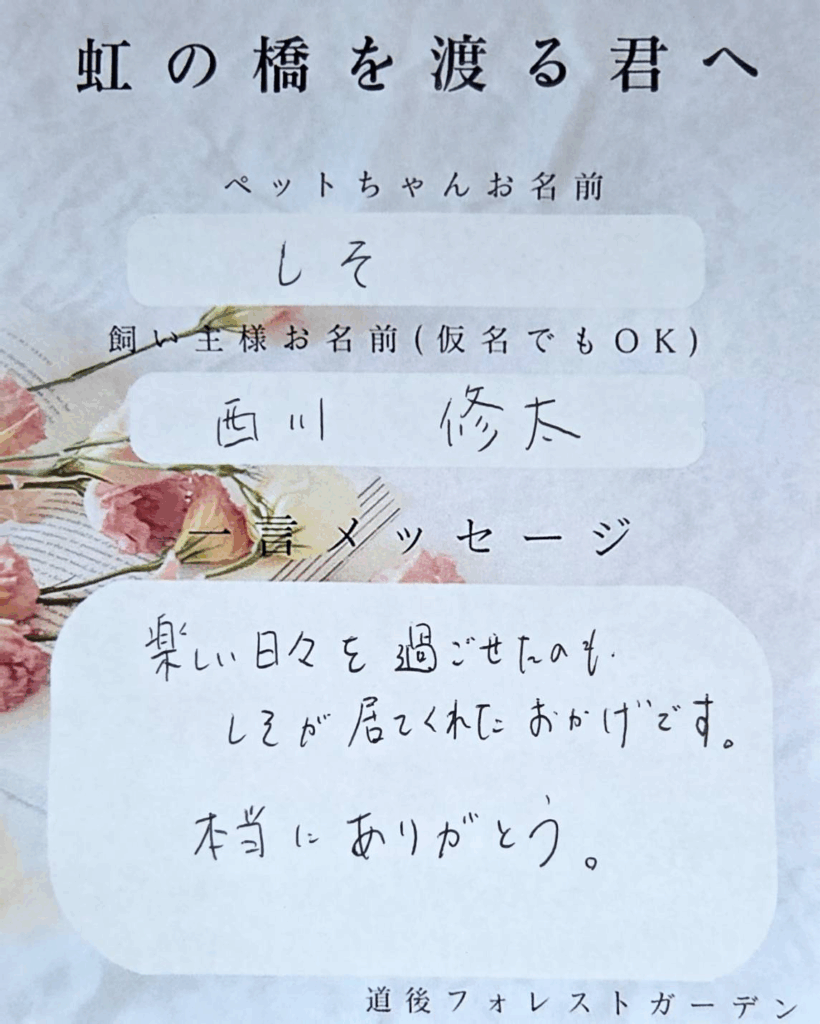 虹の橋を渡る君へ
ペットちゃんお名前
しそ
飼い主様お名前(仮名でもOK)
西川 修太
一言メッセージ
楽しい日々を過ごせたのも
しそが居てくれたおかげです。
本当にありがとう。
道後フォレストガーデン